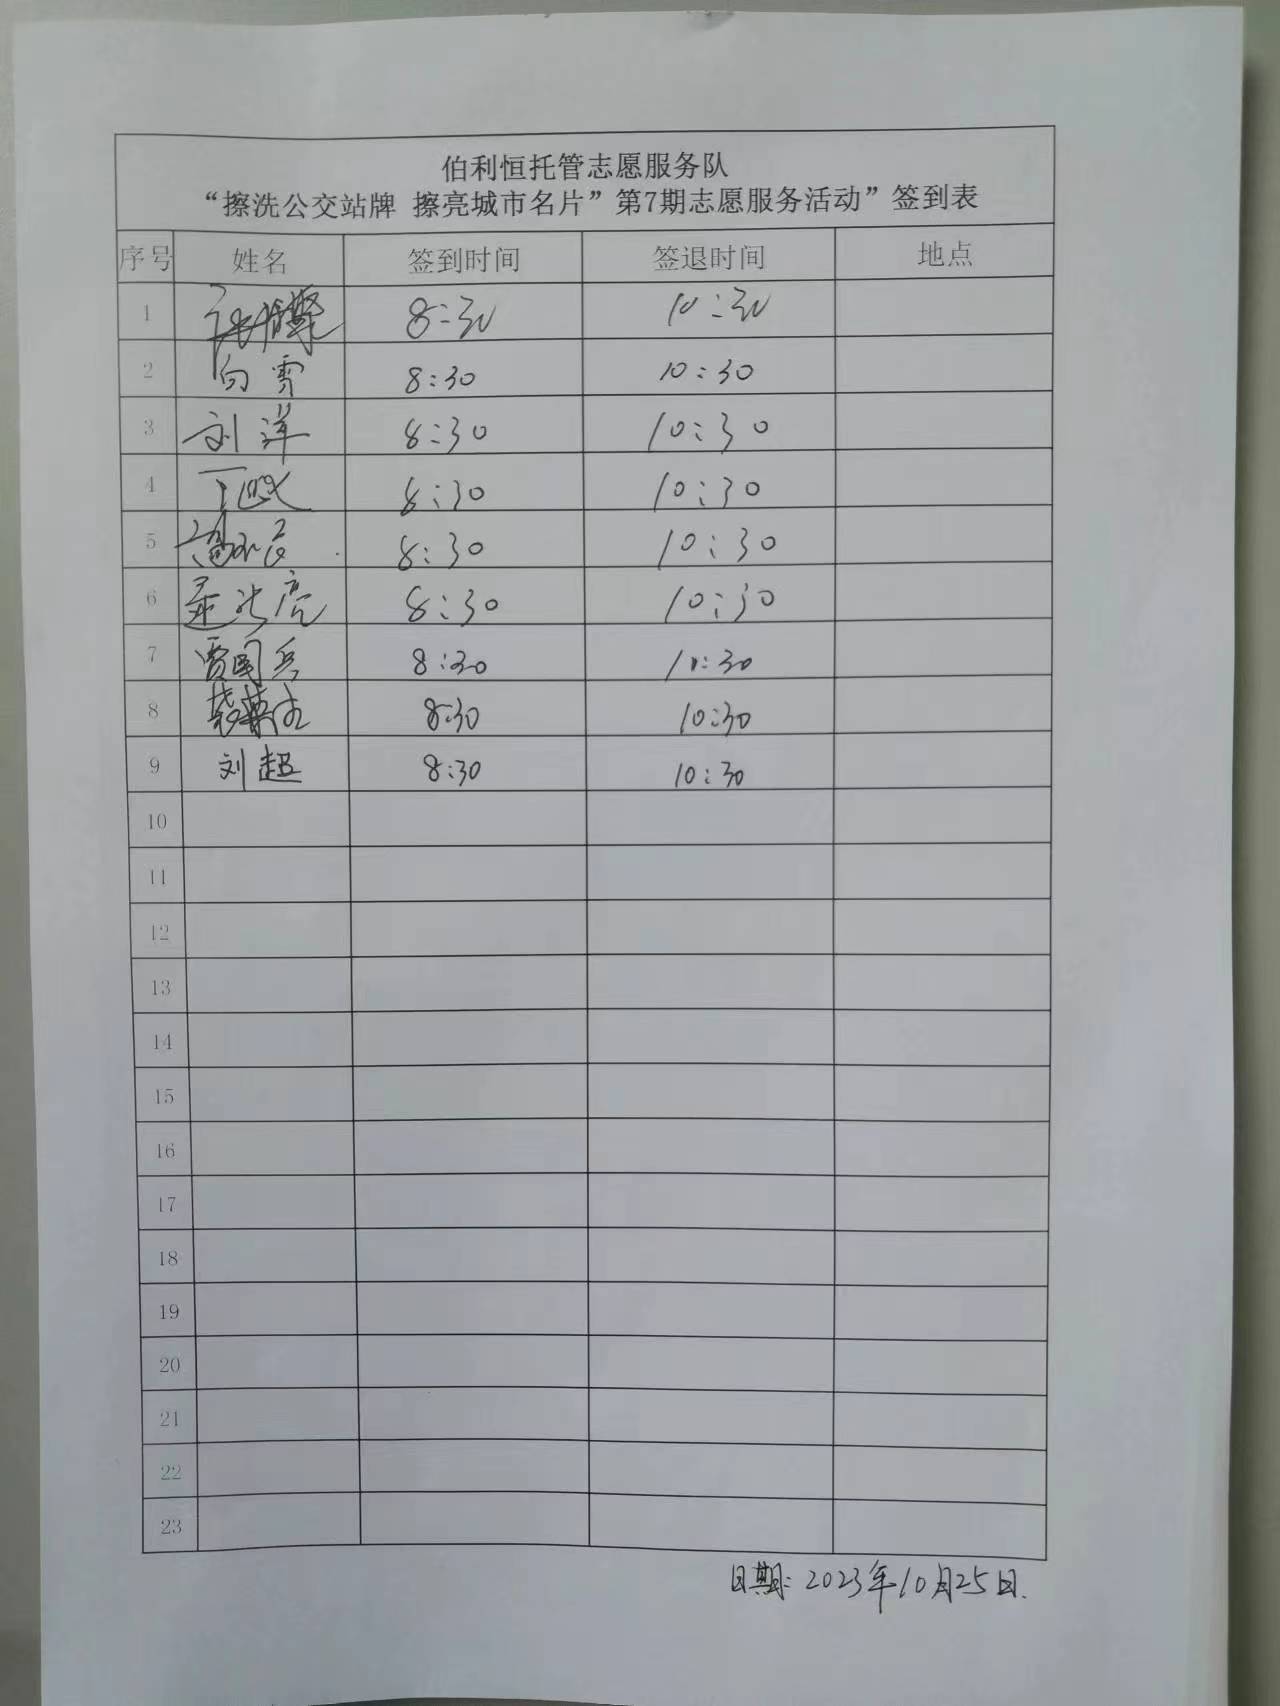 伯利恒托管志愿服务队
“擦洗公交站牌 擦亮城市名片”第7期志愿服务活动”签到表
序号 姓名 签到时间 签退时间 地点
1 8:30 10:30
2 白雪 8:30 10:30
3 刘洋 8:30 10:30
4 8:30 10:30
5 8:30 10:30
6 8:30 10:30
7 贾国兵 8:30 10:30
8 8:30 10:30
9 刘超 8:30 10:30
10
11
12
13
14
15
16
17
18
19
20
21
22
23
日期:2023年10月25日.